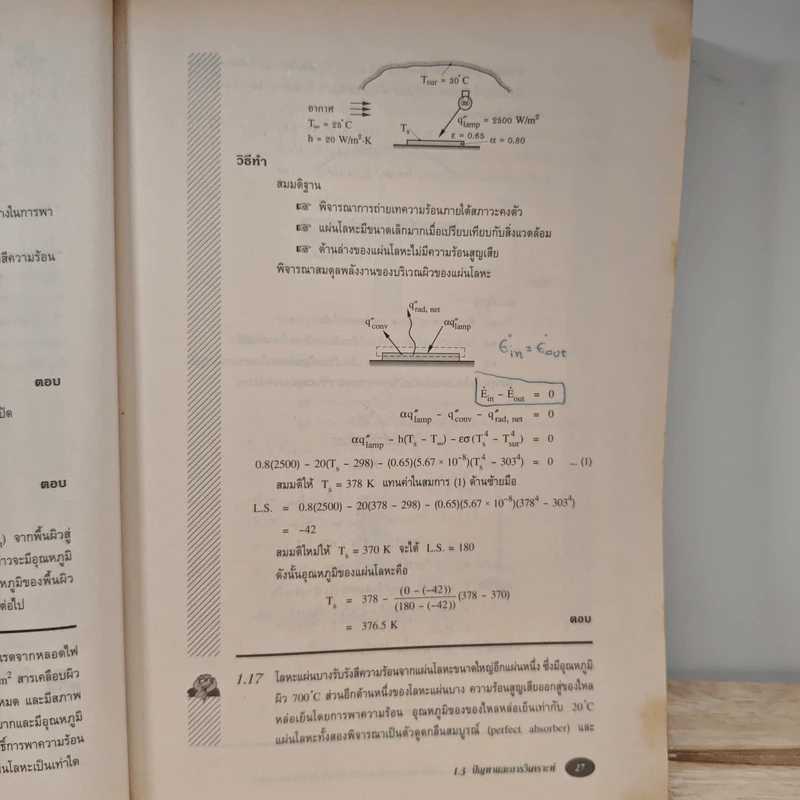 างในการพา
สีความร้อน
ตอบ
ปัด
ตอบ
จากพื้นผิวสู่
าวจะมีอุณหภูมิ
หภูมิของพื้นผิว
ต่อไป
แรดจากหลอดไฟ
m² สารเคลือบผิว
หมด และมีสภาพ
มากและมีอุณหภูมิ
ธิ์การพาความร้อน
ผ่นโลหะเป็นเท่าใด
Tsur = 30°C
อากาศ
T∞ = 25°C
h = 20 W/m²·K
q″lamp = 2500 W/m²
Ts
ε = 0.65
α = 0.80
วิธีทำ
สมมติฐาน
☞ พิจารณาการถ่ายเทความร้อนภายใต้สภาวะคงตัว
☞ แผ่นโลหะมีขนาดเล็กมากเมื่อเปรียบเทียบกับสิ่งแวดล้อม
☞ ด้านล่างของแผ่นโลหะไม่มีความร้อนสูญเสีย
พิจารณาสมดุลพลังงานของบริเวณผิวของแผ่นโลหะ
q″rad, net
q″conv
αq″lamp
Ėin = Ėout
Ėin – Ėout = 0
αq″lamp – q″conv – q″rad, net = 0
αq″lamp – h(Ts – T∞) – εσ(Ts⁴ – Tsur⁴) = 0
0.8(2500) – 20(Ts – 298) – (0.65)(5.67 × 10⁻⁸)(Ts⁴ – 303⁴) = 0 ... (1)
สมมติให้ Ts = 378 K แทนค่าในสมการ (1) ด้านซ้ายมือ
L.S. = 0.8(2500) – 20(378 – 298) – (0.65)(5.67 × 10⁻⁸)(378⁴ – 303⁴)
= –42
สมมติใหม่ให้ Ts = 370 K จะได้ L.S. = 180
ดังนั้นอุณหภูมิของแผ่นโลหะคือ
Ts = 378 – (0 – (–42))/(180 – (–42)) (378 – 370)
= 376.5 K
ตอบ
1.17 โลหะแผ่นบางรับรังสีความร้อนจากแผ่นโลหะขนาดใหญ่อีกแผ่นหนึ่ง ซึ่งมีอุณหภูมิ
ผิว 700°C ส่วนอีกด้านหนึ่งของโลหะแผ่นบาง ความร้อนสูญเสียออกสู่ของไหล
หล่อเย็นโดยการพาความร้อน อุณหภูมิของของไหลหล่อเย็นเท่ากับ 20°C
แผ่นโลหะทั้งสองพิจารณาเป็นตัวดูดกลืนสมบูรณ์ (perfect absorber) และ
1.3 ปัญหาและการวิเคราะห์ 27